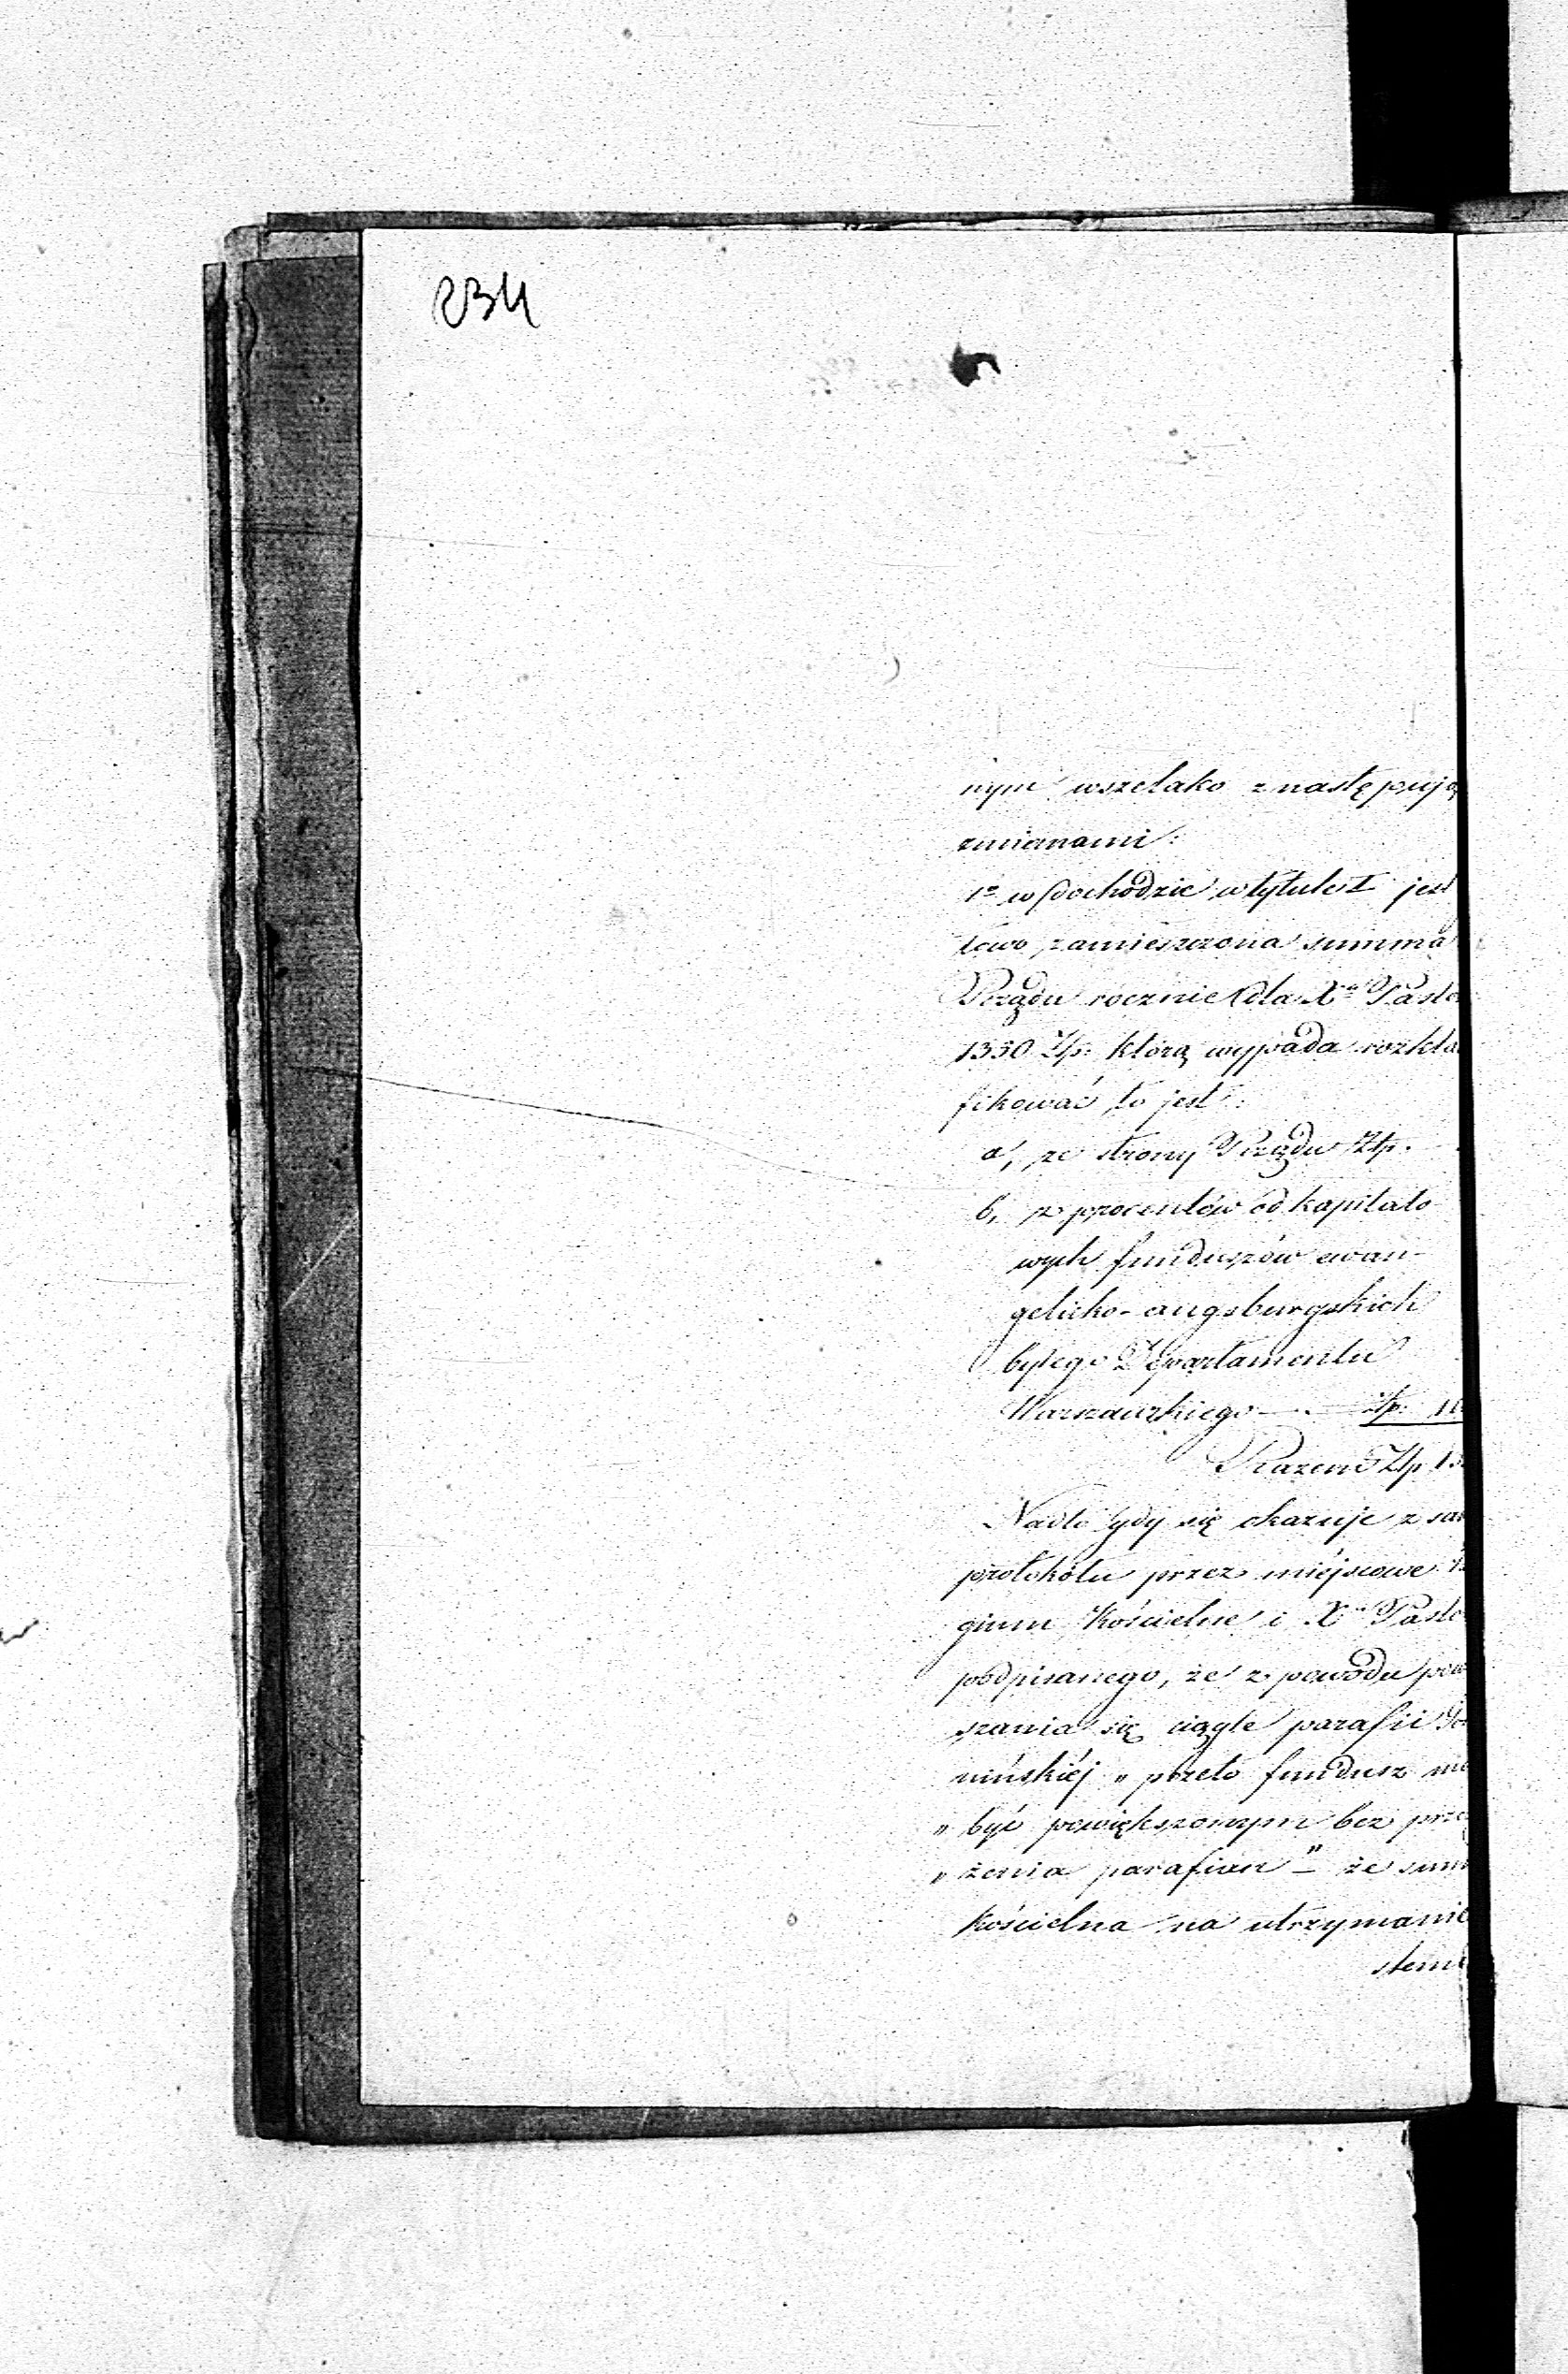 234
nym wszelako z następują
zmianami:
1º w dochodzie w tytule I jest
zamieszczona summa
Rządu rocznie dla Xa Pasto
1330 Złp. którą wypada rozkla
fikować to jest:
a, ze strony Rządu Złp.
b, z procentów od kapitało
wych funduszów ewan-
gelicko-augsburgskich
byłego Departamentu
Warszawskiego — Złp. 10
Razem Złp 13
Nadto gdy się okazuje z sa
protokółu przez miéjscowe
gium Kościelne i Xa Pasto
podpisanego, że z powodu pow
szania się ciągle parafii Go
nińskiéj „ przeto fundusz mo
„ być powiększonym bez prze
„ żenia parafian" że sum
kościelna na utrzymanie